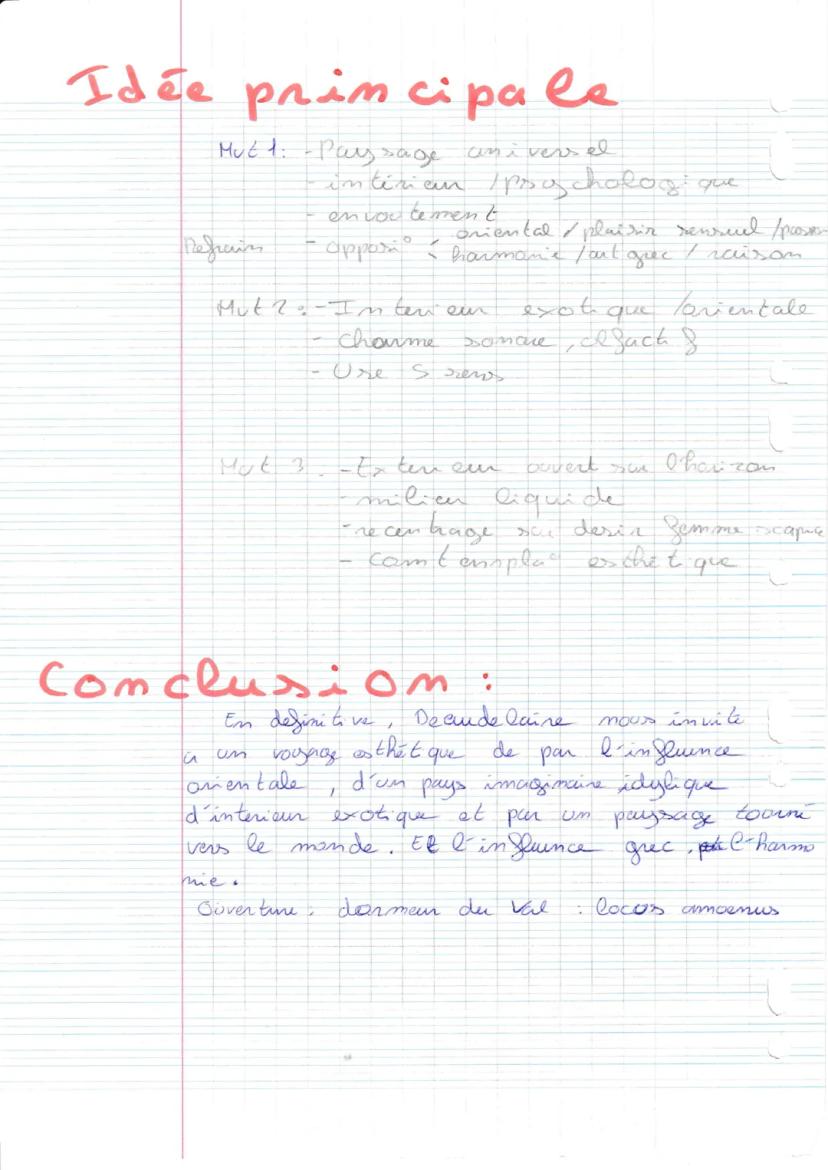 Idée principale
Mvt 1: - Paysage universel
- intérieur / psychologique
- envoutement
oriental / plaisir sensuel / passion
Refrain - opposi° < harmonie / art grec / raison
Mvt 2: - Interieur exotique / orientale
- charme sonore, olfactif
- Use 5 sens
Mvt 3 - Exterieur ouvert sur l'horizon
- milieu liquide
- recentrage sur desir femme
- comtempla° esthétique
Conclusion :
En definitive, Beaudelaire nous invite
a un voyage esthétique de par l'influence
orientale, d'un pays imaginaire idylique
d'interieur exotique et par un paysage tourné
vers le monde. Et l'influence grec, l'harmo
nie.
Ouverture : dormeur du Val : locos amoenus